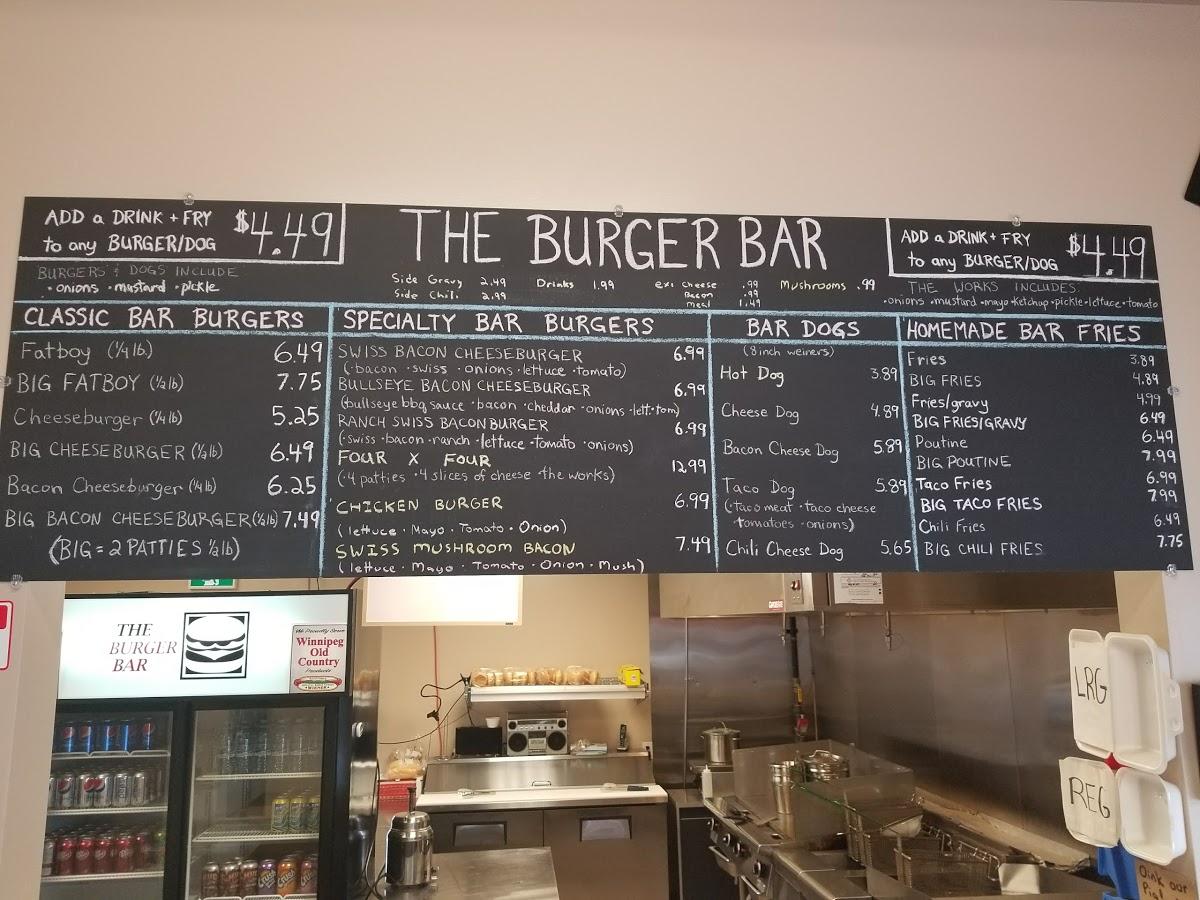 ADD a DRINK + FRY $4.49
to any BURGER/DOG
BURGERS & DOGS INCLUDE
• onions • mustard • pickle
THE BURGER BAR
Side Gravy 2.49 Drinks 1.99 ext Cheese .99 Mushrooms .99
Side Chili 2.99 Bacon .99
meat 1.49
ADD a DRINK + FRY $4.49
to any BURGER/DOG
THE WORKS INCLUDES:
•onions •mustard •mayo •ketchup •pickle •lettuce •tomato
CLASSIC BAR BURGERS
Fatboy (¼ lb.) 6.49
BIG FATBOY (½ lb) 7.75
Cheeseburger (¼ lb) 5.25
BIG CHEESEBURGER (½ lb) 6.49
Bacon Cheeseburger (¼ lb) 6.25
BIG BACON CHEESEBURGER (½ lb) 7.49
(BIG = 2 PATTIES ½ lb)
SPECIALTY BAR BURGERS
SWISS BACON CHEESEBURGER 6.99
(•bacon •swiss •onions •lettuce •tomato)
BULLSEYE BACON CHEESEBURGER 6.99
(bullseye bbq sauce •bacon •cheddar •onions •lett•tom)
RANCH SWISS BACON BURGER 6.99
(•swiss •bacon •ranch •lettuce •tomato •onions)
FOUR X FOUR 12.99
(•4 patties •4 slices of cheese •the works)
CHICKEN BURGER 6.99
(lettuce • Mayo • Tomato • Onion)
SWISS MUSHROOM BACON 7.49
(lettuce • Mayo • Tomato • Onion • Mush)
BAR DOGS
(8 inch weiners)
Hot Dog 3.89
Cheese Dog 4.89
Bacon Cheese Dog 5.89
Taco Dog 5.89
(•taco meat •taco cheese
•tomatoes •onions)
Chili Cheese Dog 5.65
HOMEMADE BAR FRIES
Fries 3.89
BIG FRIES 4.89
Fries/gravy 4.99
BIG FRIES/GRAVY 6.49
Poutine 6.49
BIG POUTINE 7.99
Taco Fries 6.99
BIG TACO FRIES 7.99
Chili Fries 6.49
BIG CHILI FRIES 7.75
THE
BURGER
BAR
We Proudly Serve
Winnipeg
Old
Country
LRG
REG
Oink our